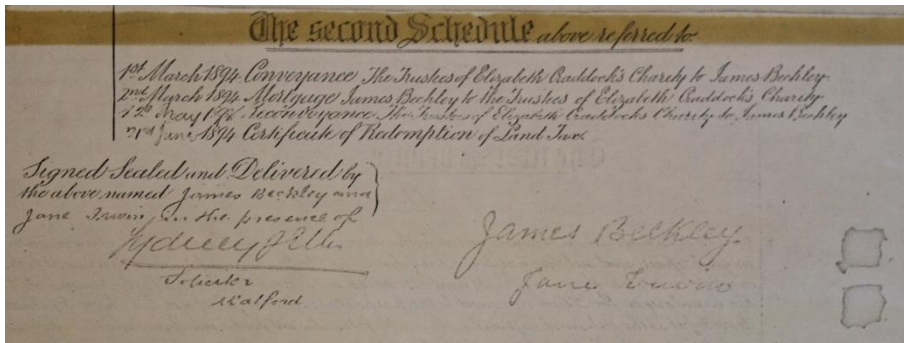 The second Schedule above referred to
1st March 1894. Conveyance The Trustees of Elizabeth Craddock's Charity to James Beckley.
2nd March 1894. Mortgage James Beckley to the Trustees of Elizabeth Craddock's Charity
May Reconveyance. The Trustees of Elizabeth Craddock's Charity to James Beckley
21st June 1894 Certificate of Redemption of Land Tax.
Signed Sealed and Delivered by
the above named James Beckley and
Jane Irwin in the presence of
Sydney J Ellis
James Beckley.
Solicitor
Jane Irwin
Watford